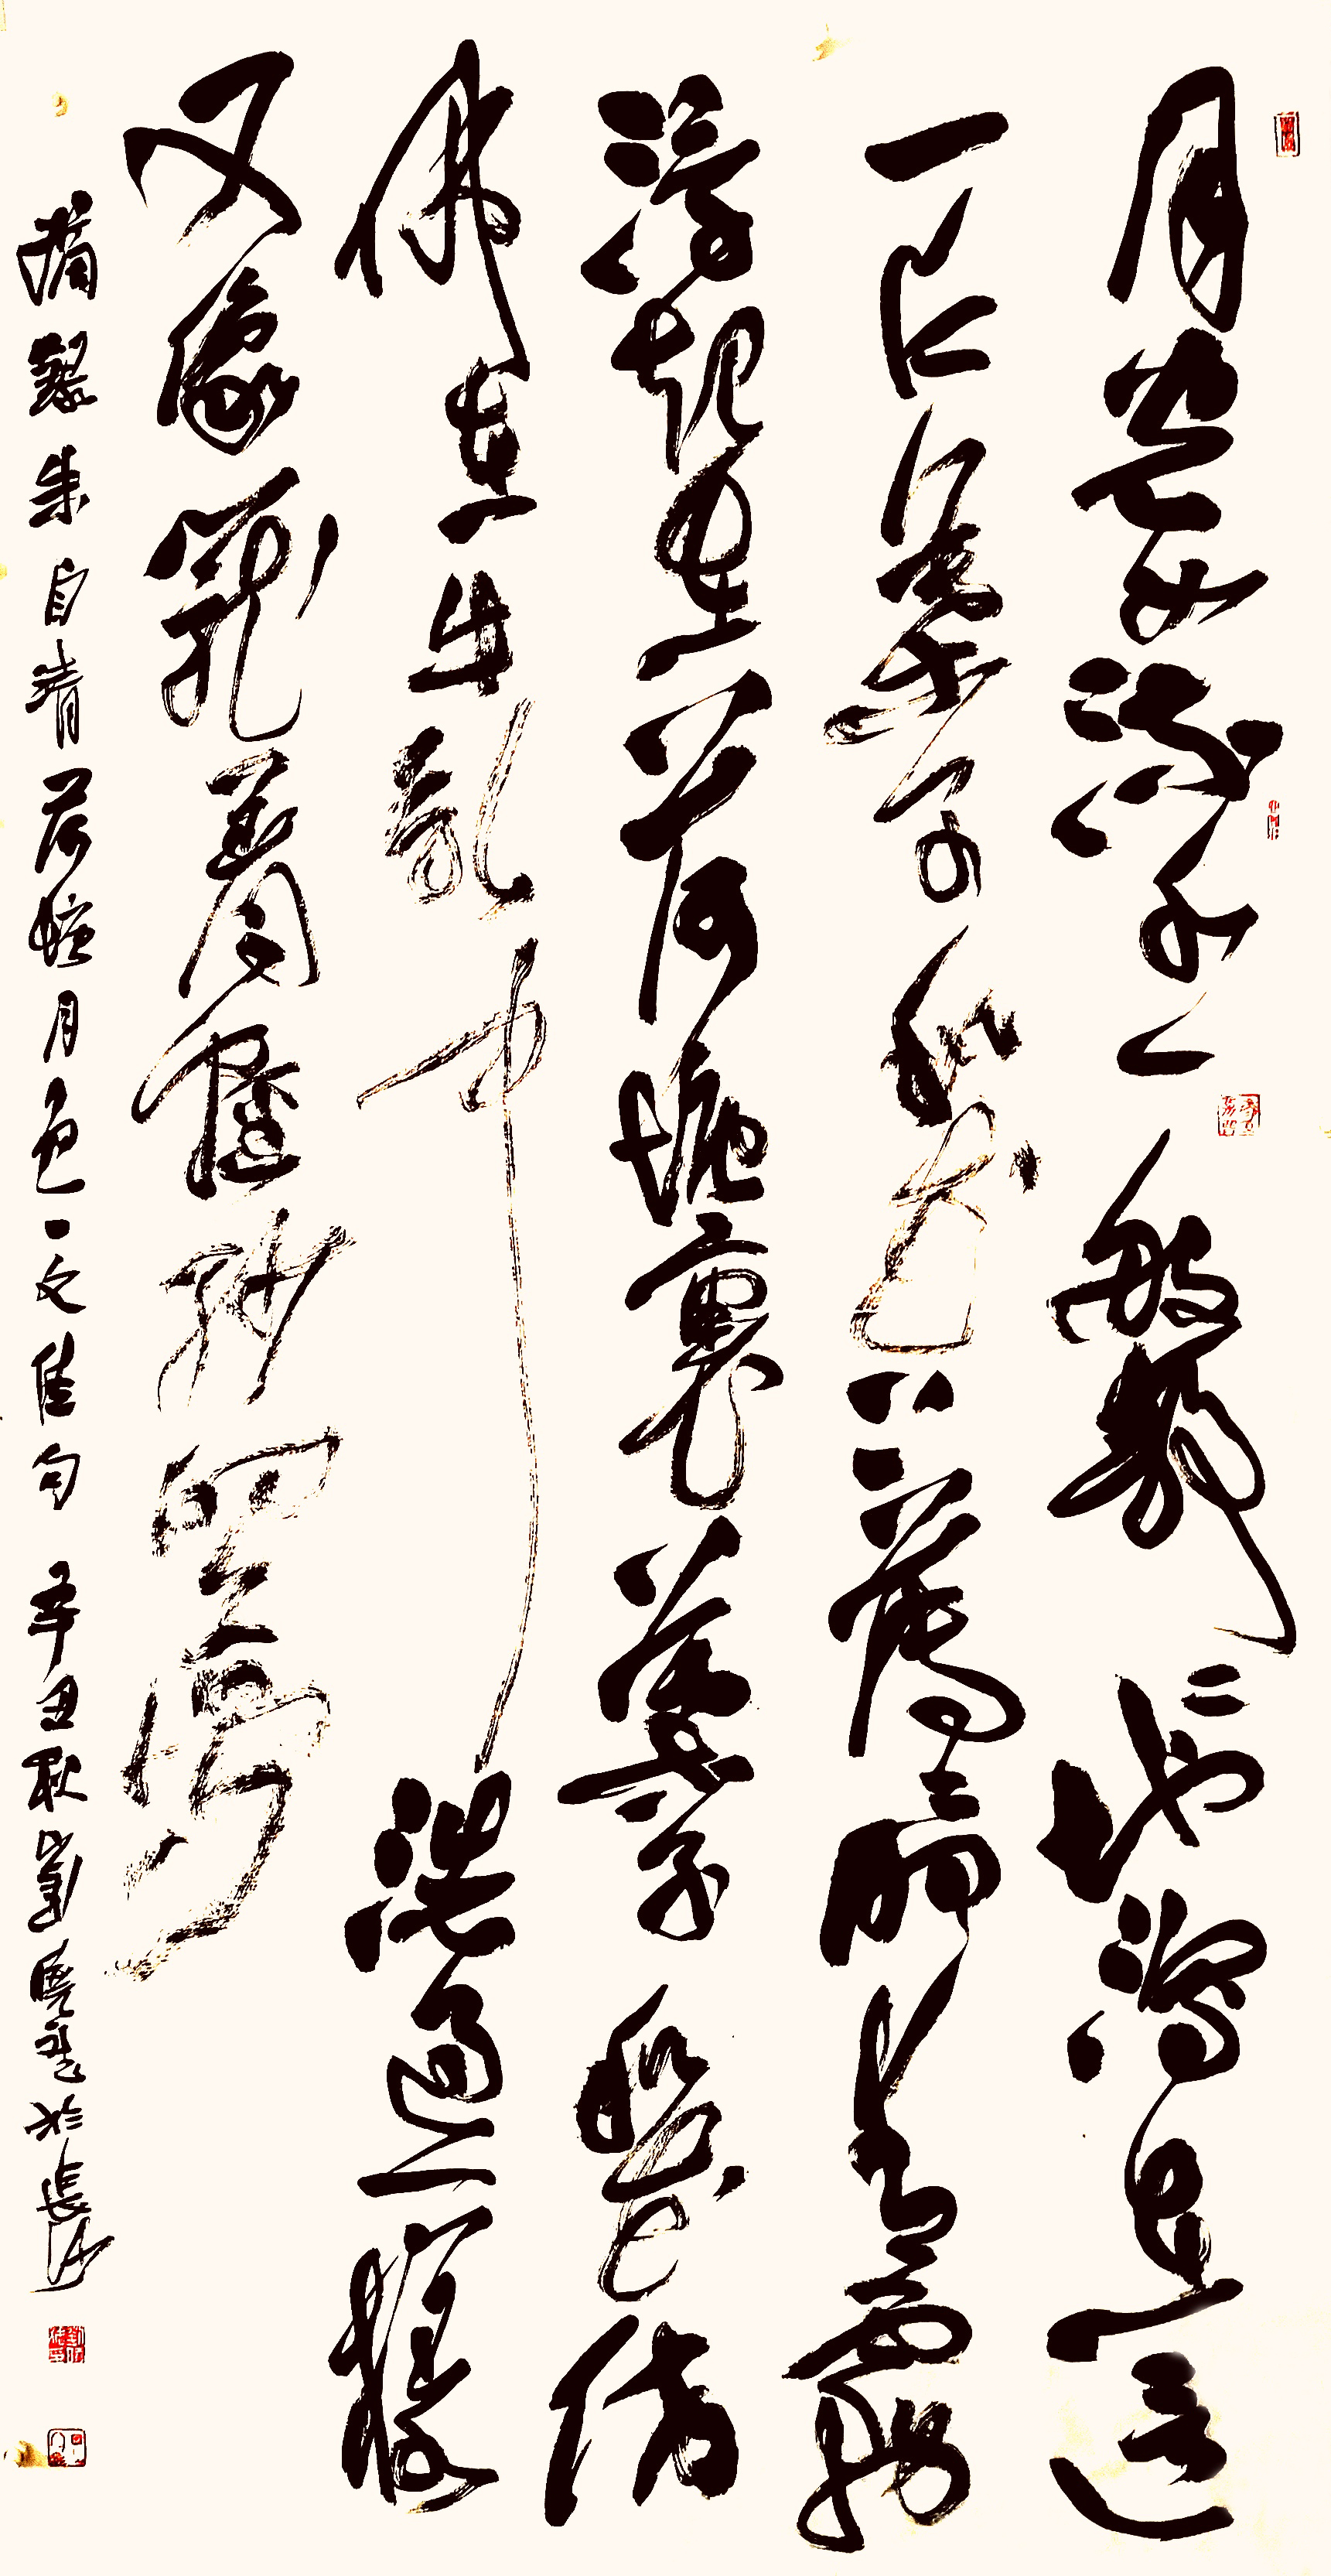 月光如流水一般静々地瀉在這
一片葉子和花上薄々的青霧
浮起在荷塘裏葉子和花仿
佛在牛乳中洗過一樣
又像籠着輕紗夢
摘録朱自清荷塘月色一文佳句 辛丑秋劉曉於長沙